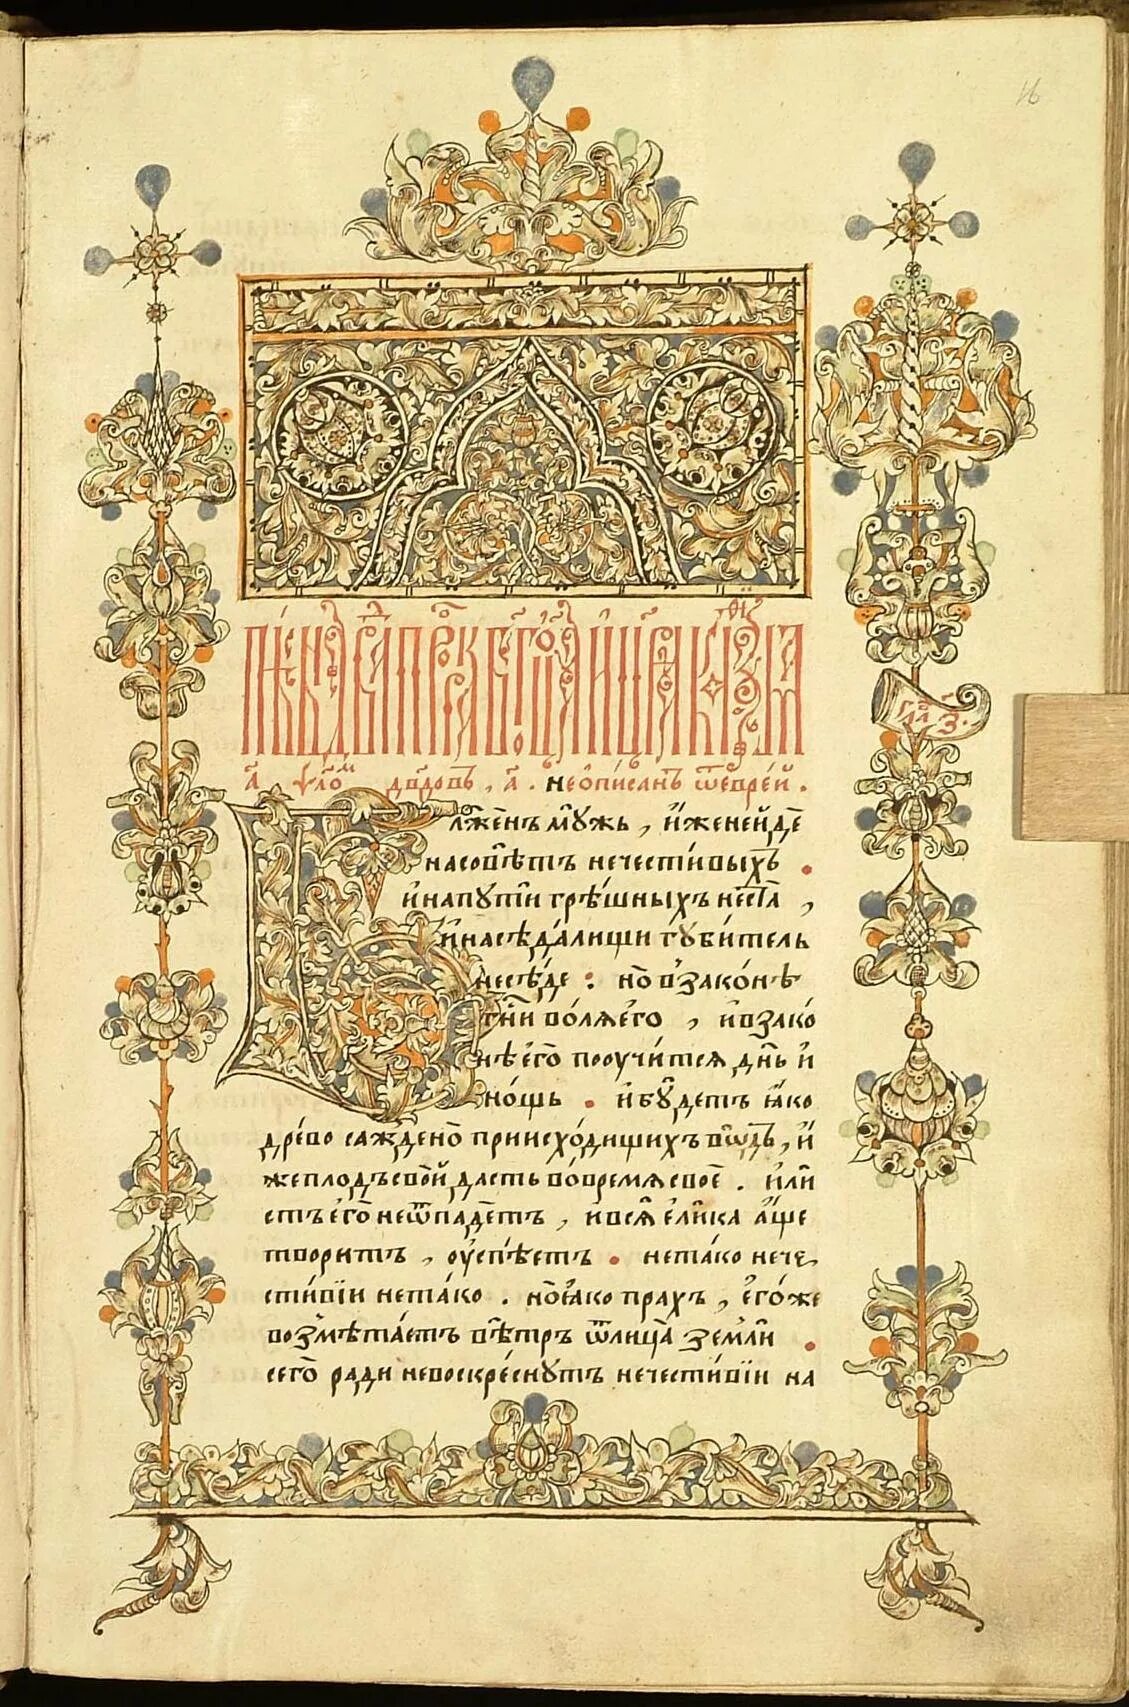 16
пѣсни двда прⷪрка бг҃оѻц҃а и цр҃ѧ каѳизма
Гла́в з҃.
а҃ ѱаⷧ҇оⷨ дв҃довъ , а҃ . неѡписанъ ѿеврей .
Бл҃же́нъ мꙋжъ , и҆же неи҆де
насовѣтъ нечестивыхъ .
и҆напꙋти грѣ́шныхъ неста̀ ,
и҆насѣда́лищи гꙋби́тель
несѣ́де : но̀ взако́нѣ
гн҃и во́лѧ є҆го̀ , и҆взако́
нѣ є҆го̀ поꙋчи́тсѧ дн҃ь и҆
но́щь . и҆бꙋ́детъ ꙗ҆́ко
дре́во сажде́но приисхо́дищихъ во́дъ , и҆́
же пло́дъ сво́й да́сть во́времѧ своѐ . и҆ ли́
стъ є҆го̀ неѿпаде́тъ , и҆всѧ̑ є҆ли́ка а҆́ще
твори́тъ , ᲂу҆спѣ́етъ . нета́ко нече
сти́вїи нета́ко . но̀ ꙗ҆́ко пра́хъ , є҆го́же
возмѣта́етъ вѣ́тръ ѿлица̀ землѝ .
сего̀ ра́ди невоскре́снꙋтъ нечести́вїи на